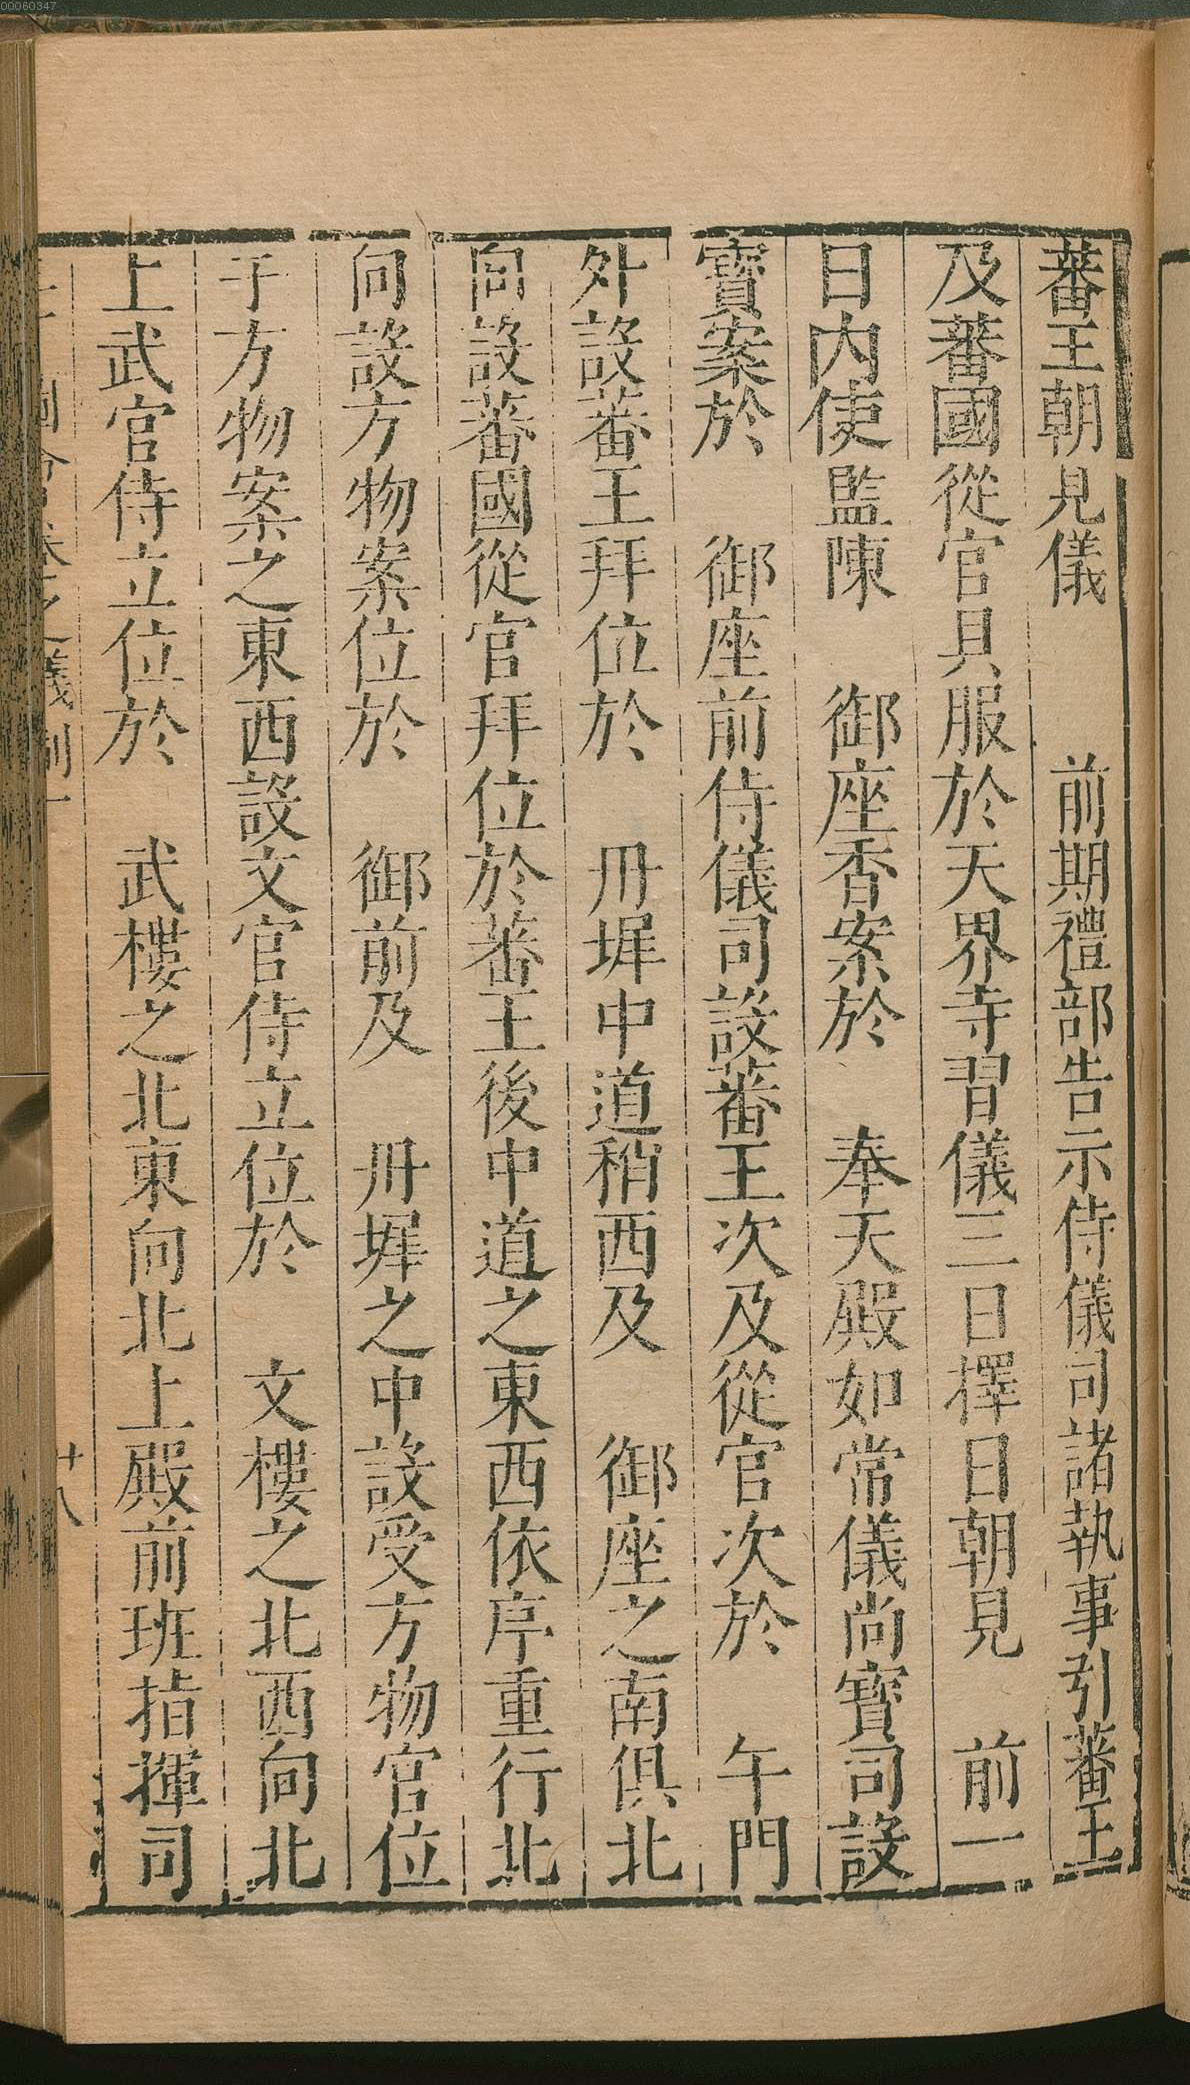 00060347
蕃王朝見儀　　前期禮部告示侍儀司諸執事引蕃王
及蕃國從官具服於天界寺習儀三日擇日朝見　前一
日內使監陳　御座香案於　奉天殿如常儀尚寶司設
寶案於　御座前侍儀司設蕃王次及從官次於　午門
外設蕃王拜位於　丹墀中道稍西及　御座之南俱北
向設蕃國從官拜位於蕃王後中道之東西依序重行北
向設方物案位於　御前及　丹墀之中設受方物官位
于方物案之東西設文官侍立位於　文樓之北西向北
上武官侍立位於　武樓之北東向北上殿前班指揮司
十八